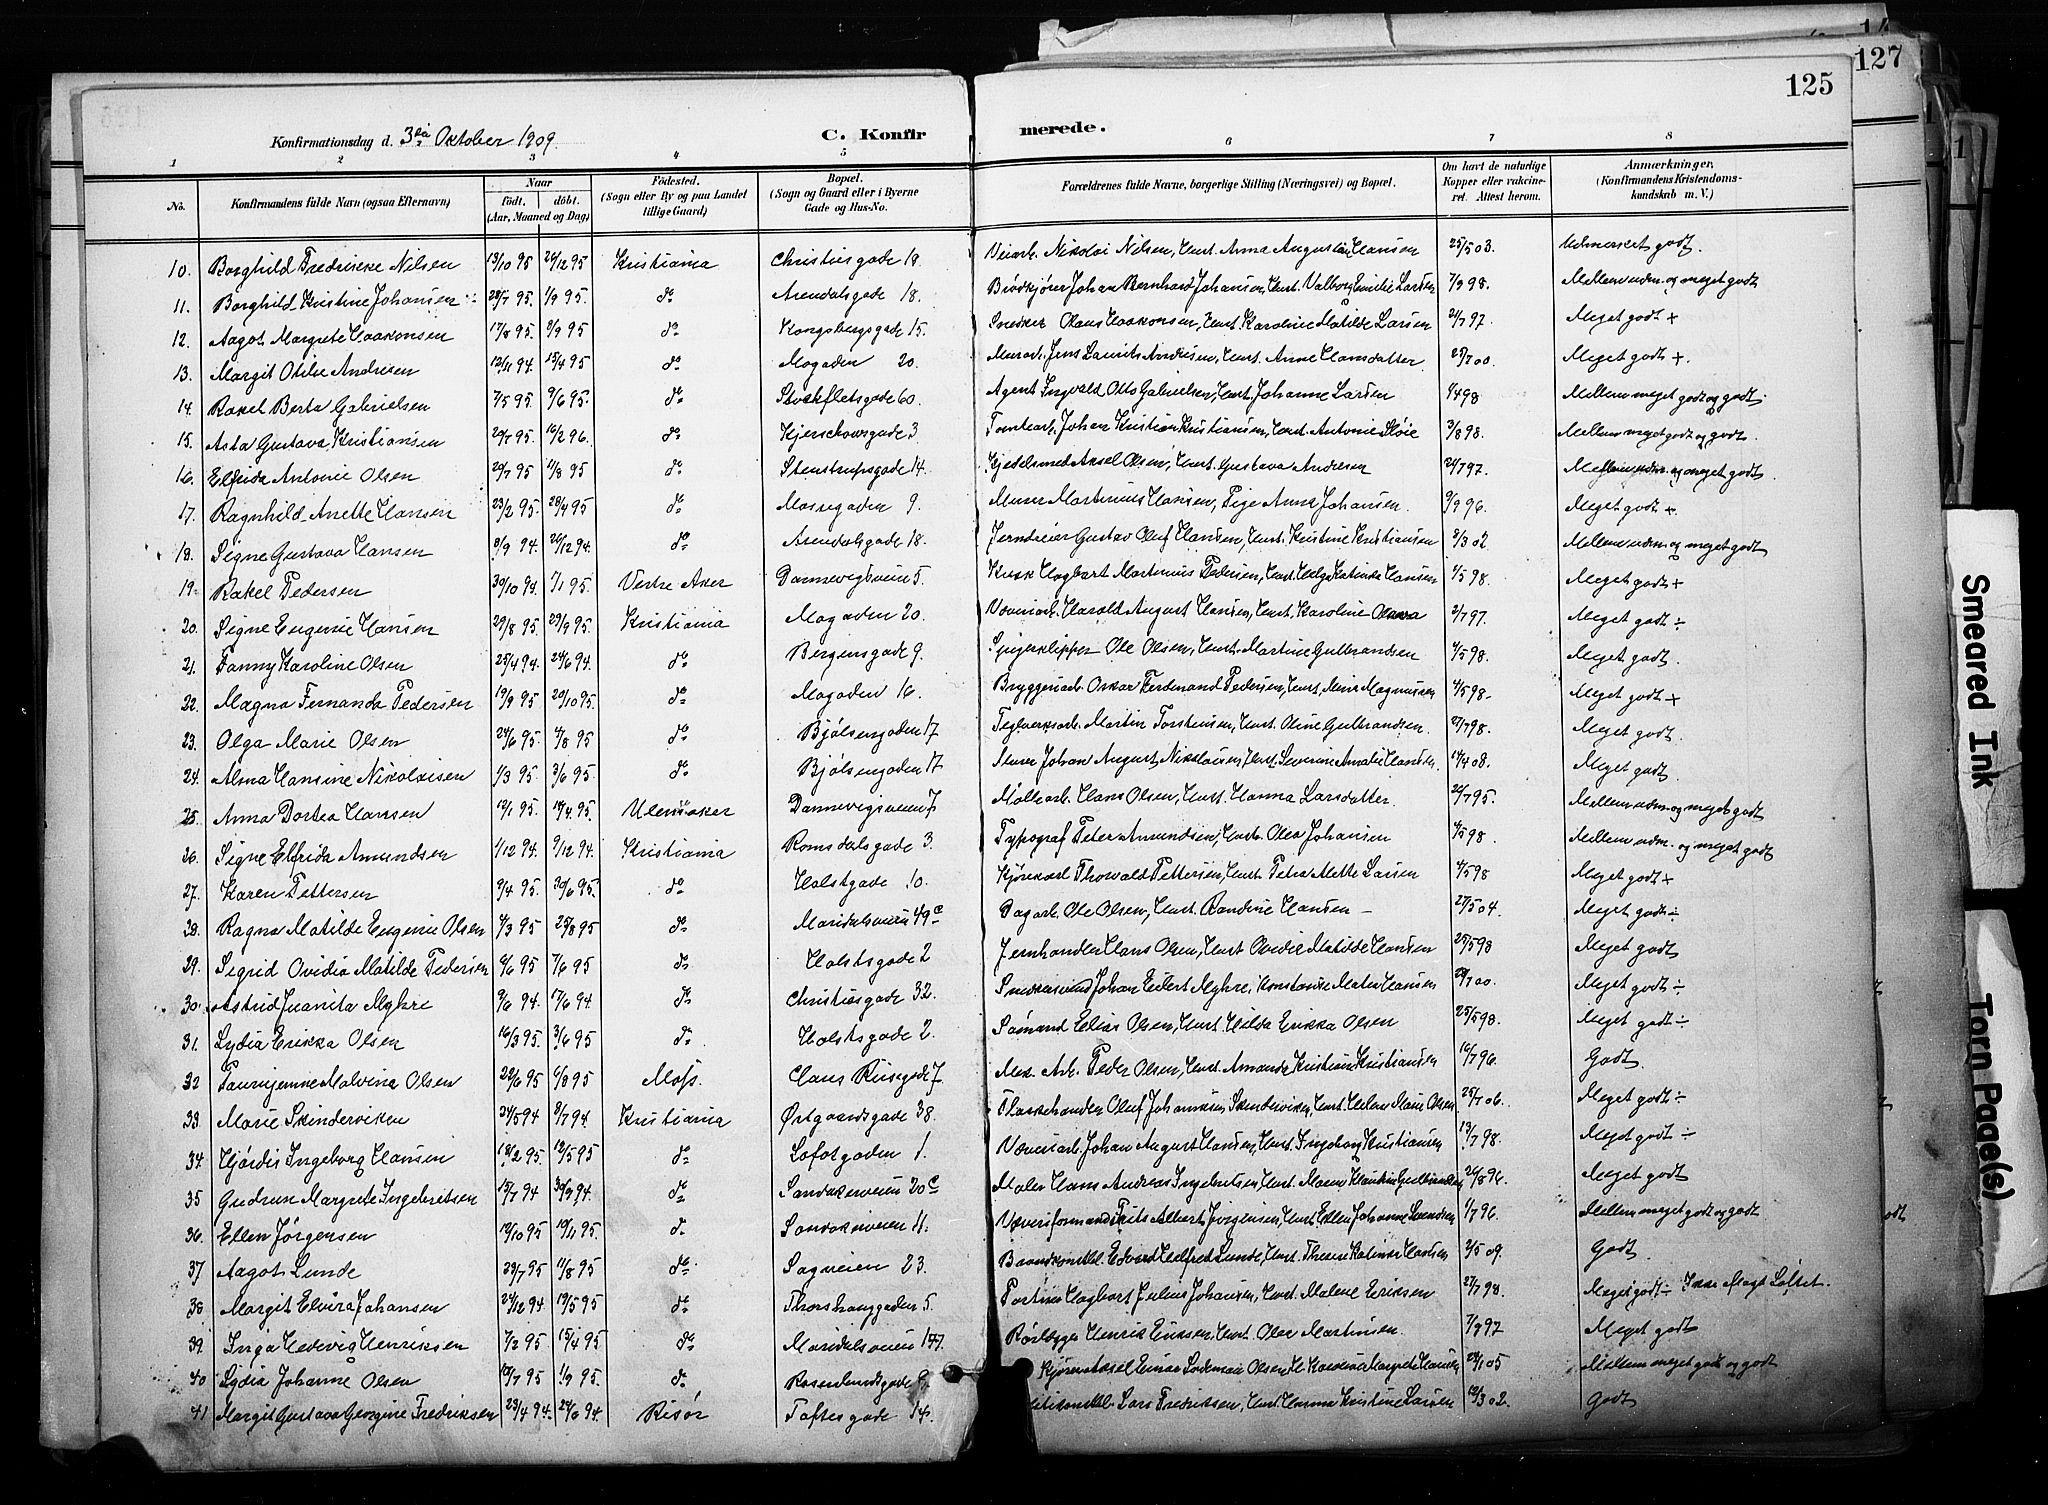 127
125
Konfirmationsdag d. 3die Oktober 1909. C. Konfirmerede.
1 2 3 4 5 6 7 8
No. Konfirmandens fulde Navn (ogsaa Efternavn) Naar født. døbt. (Aar, Maaned og Dag) Fødested. (Sogn eller By og paa Landet tillige Gaard) Bopæl. (Sogn og Gaard eller i Byerne Gade og Hus-No. Forældrenes fulde Navne, borgerlige Stilling (Næringsvei) og Bopæl. Om havt de naturlige Kopper eller vakcineret. Attest herom. Anmærkninger, (Konfirmandens Kristendomskundskab m. V.)
10. Borghild Fredrikke Nilsen 13/10 95 26/12 95 Kristiania Christiesgade 18 Veiarb. Nikolai Nilsen, Hust. Anna Augusta Hansen 25/5 03. Udmerket godt.
11. Borghild Kristine Johansen 28/7 95. 1/9 95. do Arendalsgade 18. Brødkjører Johan Bernhard Johansen, Hust. Valborg Emilie Larsen 7/9 98. Mellem udm. og meget godt
12. Aagot Margrete Haakonsen 17/8 95. 8/9 95. do Kongsbergsgade 15. Snedker Olaus Haakonsen, Hust. Karoline Matilde Larsen 21/7 97. Meget godt +
13. Margit Otilie Andresen 12/11 94. 15/4 95 do Mogaden 20. Murarb. Jens Laurits Andresen, Hust. Anne Hansdatter 25/7 00. Meget godt +.
14. Rakel Berta Gabrielsen 7/5 95. 9/6 95. do Stockfletsgade 60. Agent Ingvald Otto Gabrielsen, Hust. Johanne Larsen 1/4 98 Mellem meget godt og godt.
15. Asta Gustava Kristiansen 29/7 95. 16/2 96. do Kjerschowsgade 3. Tomtearb. Johan Kristian Kristiansen, Hust. Antonie Skøie 3/8 98. Mellem meget godt og godt.
16. Elfrida Antonie Olsen 29/7 95 11/8 95 do Stenstrupsgade 14. Kjedelsmed Aksel Olsen, Hust. Gustava Andresen 21/7 97. Mellem udm. og meget godt
17. Ragnhild Anette Hansen 23/2 95. 28/4 95 do Mossegaden 9. Murer Martinius Hansen, Pige Anna Johansen. 9/9 96. Meget godt +.
18. Signe Gustava Hansen 8/9 94. 26/12 94. do Arendalsgade 18. Jerndreier Gustav Oluf Hansen, Hust. Kristine Kristiansen 8/3 02. Mellem udm. og meget godt
19. Rakel Pedersen 30/10 94. 7/1 95. Vestre Aker Dannevigsveien 5. Kusk Hagbart Martinius Pedersen, Hust. Helga Katinka Hansen 4/5 98. Meget godt +
20. Signe Eugenie Hansen 29/8 95. 29/9 95. Kristiania Mogaden 20. Væveriarb. Harald August Hansen, Hust. Karoline 2/7 97. Meget godt ÷
21. Fanny Karoline Olsen 25/4 94. 24/6 94. do Bergensgade 9. Spigerklipper Ole Olsen, Hust. Martine Gulbrandsen 4/5 98. Meget godt.
22. Magna Fernanda Pedersen 19/9 95 20/10 95. do Mogaden 16. Bryggeriarb. Oskar Ferdinand Pedersen, Hust. Mina Magnussen 4/5 98. Meget godt +
23. Olga Marie Olsen 24/6 95. 4/8 95 do Bjølsengaden 17 Teglverksarb. Martin Torstensen, Hust. Oline Gulbrandsen. 27/7 98. Meget godt.
24. Alma Hansine Nikolaisen 1/3 95. 3/6 95. do Bjølsengaden 17 Murer Johan August Nikolaisen, Hust. Severine Amalie Hansen. 14/4 08. Meget godt.
25. Anna Dortea Hansen 12/1 95. 14/4 95. Ullensaker Dannevigsveien 7 Møllearb. Hans Olsen, Hust. Hanna Larsdatter. 22/7 95. Mellem udm. og meget godt
26. Signe Elfrida Amundsen 1/12 94. 9/12 94. Kristiania Romsdalsgade 3. Typograf Peter Amundsen, Hust. Olea Johansen 4/5 98 Mellem udm. og meget godt
27. Karen Pettersen 9/4 95. 30/6 95. do Holstgade 10. Kjørekarl Thorvald Pettersen, Hust. Petra Alette Larsen 4/5 98 Meget godt +
28. Ragna Matilde Eugenie Olsen 4/3 95. 25/8 95 do Maridalsveien 49c Dagarb. Ole Olsen, Hust. Randine Hansen — 27/5 04. Meget godt ÷
29. Sigrid Ovidia Matilde Pedersen 6/6 95 7/6 95. do Holstsgade 2 Jernhandler Hans Olsen, Hust Ovidie Matilde Hansen 25/5 98 Meget godt
30. Astrid Juanita Myhre 9/6 94. 17/6 94. do Christiesgade 32. Snedkersvend Johan Eilert Myhre, Konstanse Matea Hansen 28/7 00. Meget godt ÷
31. Lydia Erikka Olsen 16/3 95. 3/6 95 do Holstsgade 2. Sømand Elias Olsen, Hust. Hilda Erikka Olsen 25/5 98. Meget godt ÷
32 Malvina Olsen 29/6 95 4/8 95 Moss. Claus Riisesgade 7 Mek. Arb. Peder Olsen, Hust. Amanda Kristine Kristiansen 16/7 96. Godt.
33. Marie Skinderviken 24/5 94 8/7 94. Kristiania Østgaardsgade 38. Flaskehandler Oluf Johansen Skinderviken, Hust. Helene Marie Olsen 25/7 06. Meget godt ÷
34. Hjørdis Ingeborg Hansen 18/2 95. 12/5 95 do Lofotgaden 1. Væveriarb. Johan August Hansen, Hust. Ingeborg Kristiansen 13/7 98. Meget godt ÷
35 Gudrun Margrete Ingebretsen 13/7 94 30/9 94. do Sandakerveien 20c Maler Hans Andreas Ingebretsen, Hust. 26/8 96. Meget godt
36. Ellen Jørgensen 10/10 95 10/11 95. do Sandakerveien 11. Væveriformand Frits Albert Jørgensen, Hust Ellen Johanne Svendsen 1/7 96. Mellem meget godt og godt
37 Aagot Lunde 29/7 95 11/8 95 do Sagveien 23. Edvard Helfred Lunde, Hust. Thea Katinka Hansen 3/5 09. Godt.
38. Margit Elvira Johansen 24/12 94 19/5 95 do Thorshauggaden 5. Portner Hagbart Julius Johansen, Hust. Malene Eriksen 27/7 98. Meget godt ÷ Ikke Aflagt Løftet.
39. Inga Hedvig Henriksen 7/2 95. 15/4 95 do Maridalsveien 177. Rørlægger Henrik Eriksen, Hust. Olea Martinsen. 7/9 97 Meget godt
40 Lydia Johanne Olsen 19/7 95 1/9 95. do Rosenlundsgade 9. Einar Olsen, H. Karoline Margrete Hansen 28/1 05 Mellem meget godt og godt
41 Margit Gustava Georgine Fredriksen 23/4 94. 24/6 94. Risør Toftesgade 14. Lars Fredriksen, Hust. Hanna Kristine Larsen 12/3 02. Godt
Smeared Ink
Torn Page(s)